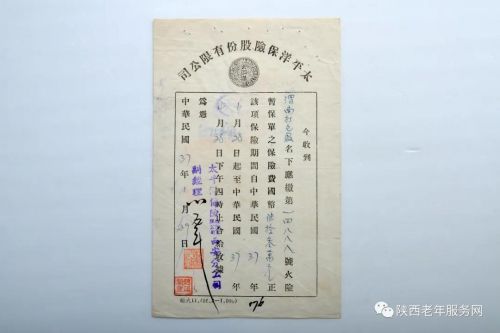 太平洋保險股份有限公司
今收到
渭南打包廠名下應繳第一四八八八號火險
暫保單之保險費國幣正
該項保險期間自中華民國37年
月28日起至中華民國37年
月28日下午四時止合給收據
為憑
太平洋保險公司西安分公司
副經理
中華民國37年月日
陕西老年服务网